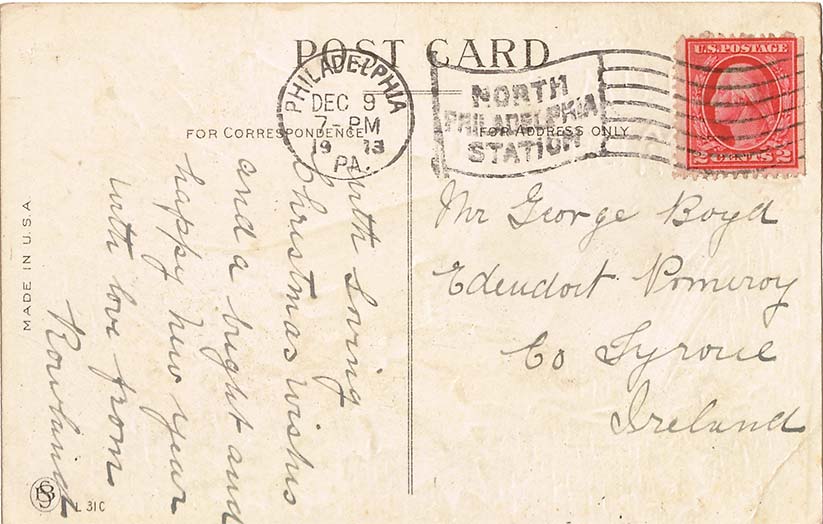 POST CARD
PHILADELPHIA
DEC 9
7-PM
1913
PA.
NORTH
PHILADELPHIA
STATION
U.S. POSTAGE
2 CENTS 2
FOR CORRESPONDENCE
FOR ADDRESS ONLY
with Loving
Christmas wishes
and a bright and
happy new year
with love from
Rowland
Mr George Boyd
Edendoit Pomeroy
Co Tyrone
Ireland
MADE IN U.S.A.
L 31C